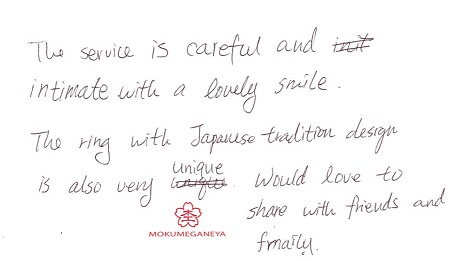 The service is careful and
intimate with a lovely smile.
The ring with Japanese tradition design
is also very unique. Would love to
share with friends and
fmaily.
MOKUMEGANEYA